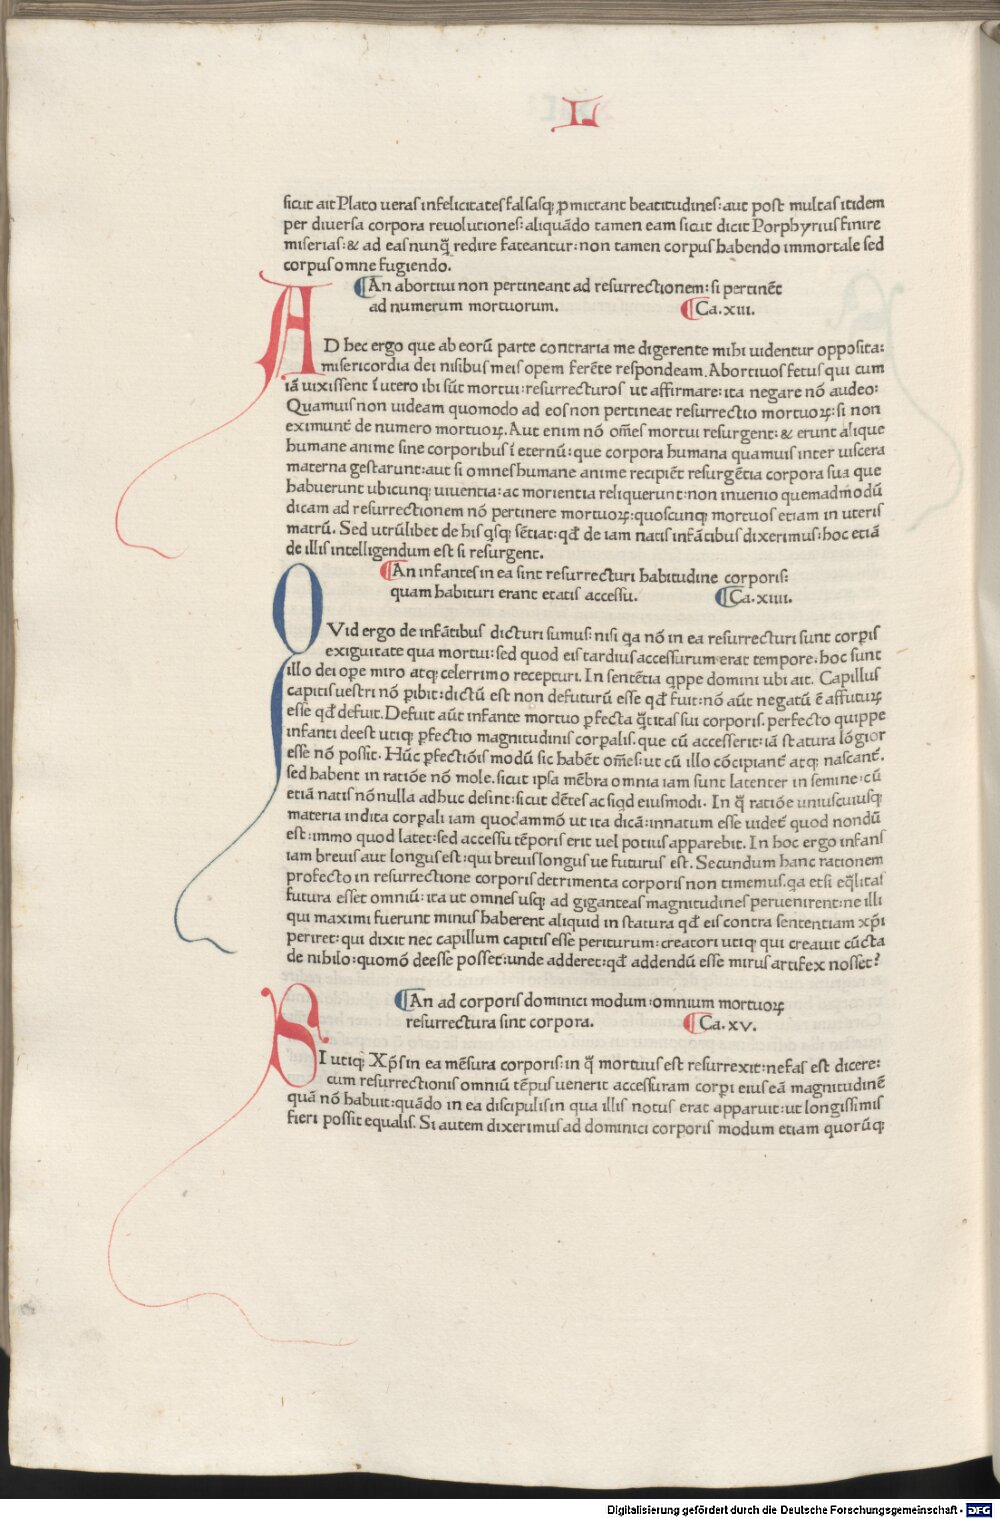 L
sicut ait Plato ueras infelicitates falsasq; ꝓmittant beatitudines: aut post multas itidem
per diuersa corpora reuolutiones: aliquādo tamen eam sicut dicit Porphyrius finire
miserias: & ad eas nunq̄ redire fateantur: non tamen corpus habendo immortale sed
corpus omne fugiendo.
¶An abortiui non pertineant ad resurrectionem: si pertinēt
ad numerum mortuorum. ¶Ca.xiii.
AD hec ergo que ab eorū parte contraria me digerente mihi uidentur opposita:
misericordia dei nisibus meis opem ferēte respondeam. Abortiuos fetus qui cum
iā uixissent ī utero ibi sūt mortui: resurrecturos ut affirmare: ita negare nō audeo:
Quamuis non uideam quomodo ad eos non pertineat resurrectio mortuoꝝ: si non
eximunt̄ de numero mortuoꝝ. Aut enim nō om̄es mortui resurgent: & erunt alique
humane anime sine corporibus ī eternū: que corpora humana quamuis inter uiscera
materna gestarunt: aut si omnes humane anime recipiēt resurgētia corpora sua que
habuerunt ubicunq; uiuentia: ac morientia reliquerunt: non inuenio quemadmodū
dicam ad resurrectionem nō pertinere mortuoꝝ: quoscunq; mortuos etiam in uteris
matrū. Sed utrūlibet de his q̇sq; sētiat: qd̄ de iam natis infātibus dixerimus: hoc etiā
de illis intelligendum est si resurgent.
¶An infantes in ea sint resurrecturi habitudine corporis:
quam habituri erant etatis accessu. ¶Ca.xiiii.
QVid ergo de infātibus dicturi sumus: nisi q̇a nō in ea resurrecturi sunt corꝑis
exiguitate qua mortui: sed quod eis tardius accessurum erat tempore: hoc sunt
illo dei oꝑe miro atq; celerrimo recepturi. In sentētia q̇ppe domini ubi ait. Capillus
capitis uestri nō ꝑibit: dictū est non defuturū esse qd̄ fuit: nō aūt negatū ē affuturꝝ
esse qd̄ defuit. Defuit aūt infante mortuo ꝑfecta q̄titas sui corporis. perfecto quippe
infanti deest utiq; ꝑfectio magnitudinis corꝑalis. que cū accesserit: iā statura lōgior
esse nō possit. Hūc ꝑfectiōis modū sic habēt om̄es: ut cū illo cōcipiant̄ atq; nascant̄.
sed habent in ratiōe nō mole. sicut ipsa mēbra omnia iam sunt latenter in semine: cū
etiā natis nōnulla adhuc desint: sicut dētes ac siq̇d eiusmodi. In q̄ ratiōe uniuscuiusq;
materia indita corꝑali iam quodammō ut ita dicā: innatum esse uidet̄ quod nondū
est: immo quod latet: sed accessu tēporis erit uel potius apparebit. In hoc ergo infans
iam breuis aut longus est: qui breuis longus ue futurus est. Secundum hanc rationem
profecto in resurrectione corporis detrimenta corporis non timemus. q̇a etsi eq̄litas
futura esset omniū: ita ut omnes usq; ad giganteas magnitudines peruenirent: ne illi
qui maximi fuerunt minus haberent aliquid in statura qd̄ eis contra sententiam xp̄i
periret: qui dixit nec capillum capitis esse periturum: creatori utiq; qui creauit cūcta
de nihilo: quomō deesse posset: unde adderet: qd̄ addendū esse mirus artifex nosset?
¶An ad corporis dominici modum: omnium mortuoꝝ
resurrectura sint corpora. ¶Ca.xv.
SI utiq; Xp̄s in ea mēsura corporis: in q̄ mortuus est resurrexit: nefas est dicere:
cum resurrectionis omniū tēpus uenerit accessuram corꝑi eius eā magnitudinē
quā nō habuit: quādo in ea discipulis in qua illis notus erat apparuit: ut longissimis
fieri possit equalis. Si autem dixerimus ad dominici corporis modum etiam quorūq;
Digitalisierung gefördert durch die Deutsche Forschungsgemeinschaft - DFG